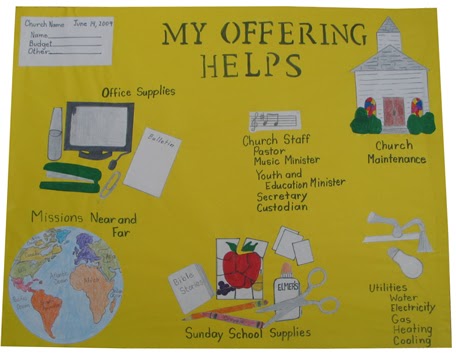 Church Name June 14, 2009
Name
Budget
Other
MY OFFERING
HELPS
Office Supplies
Bulletin
Church Staff
Pastor
Music Minister
Youth and
Education Minister
Secretary
Custodian
Church
Maintenance
Missions Near and
Far
Bible
Stories
ELMER'S
Sunday School Supplies
Utilities
Water
Electricity
Gas
Heating
Cooling